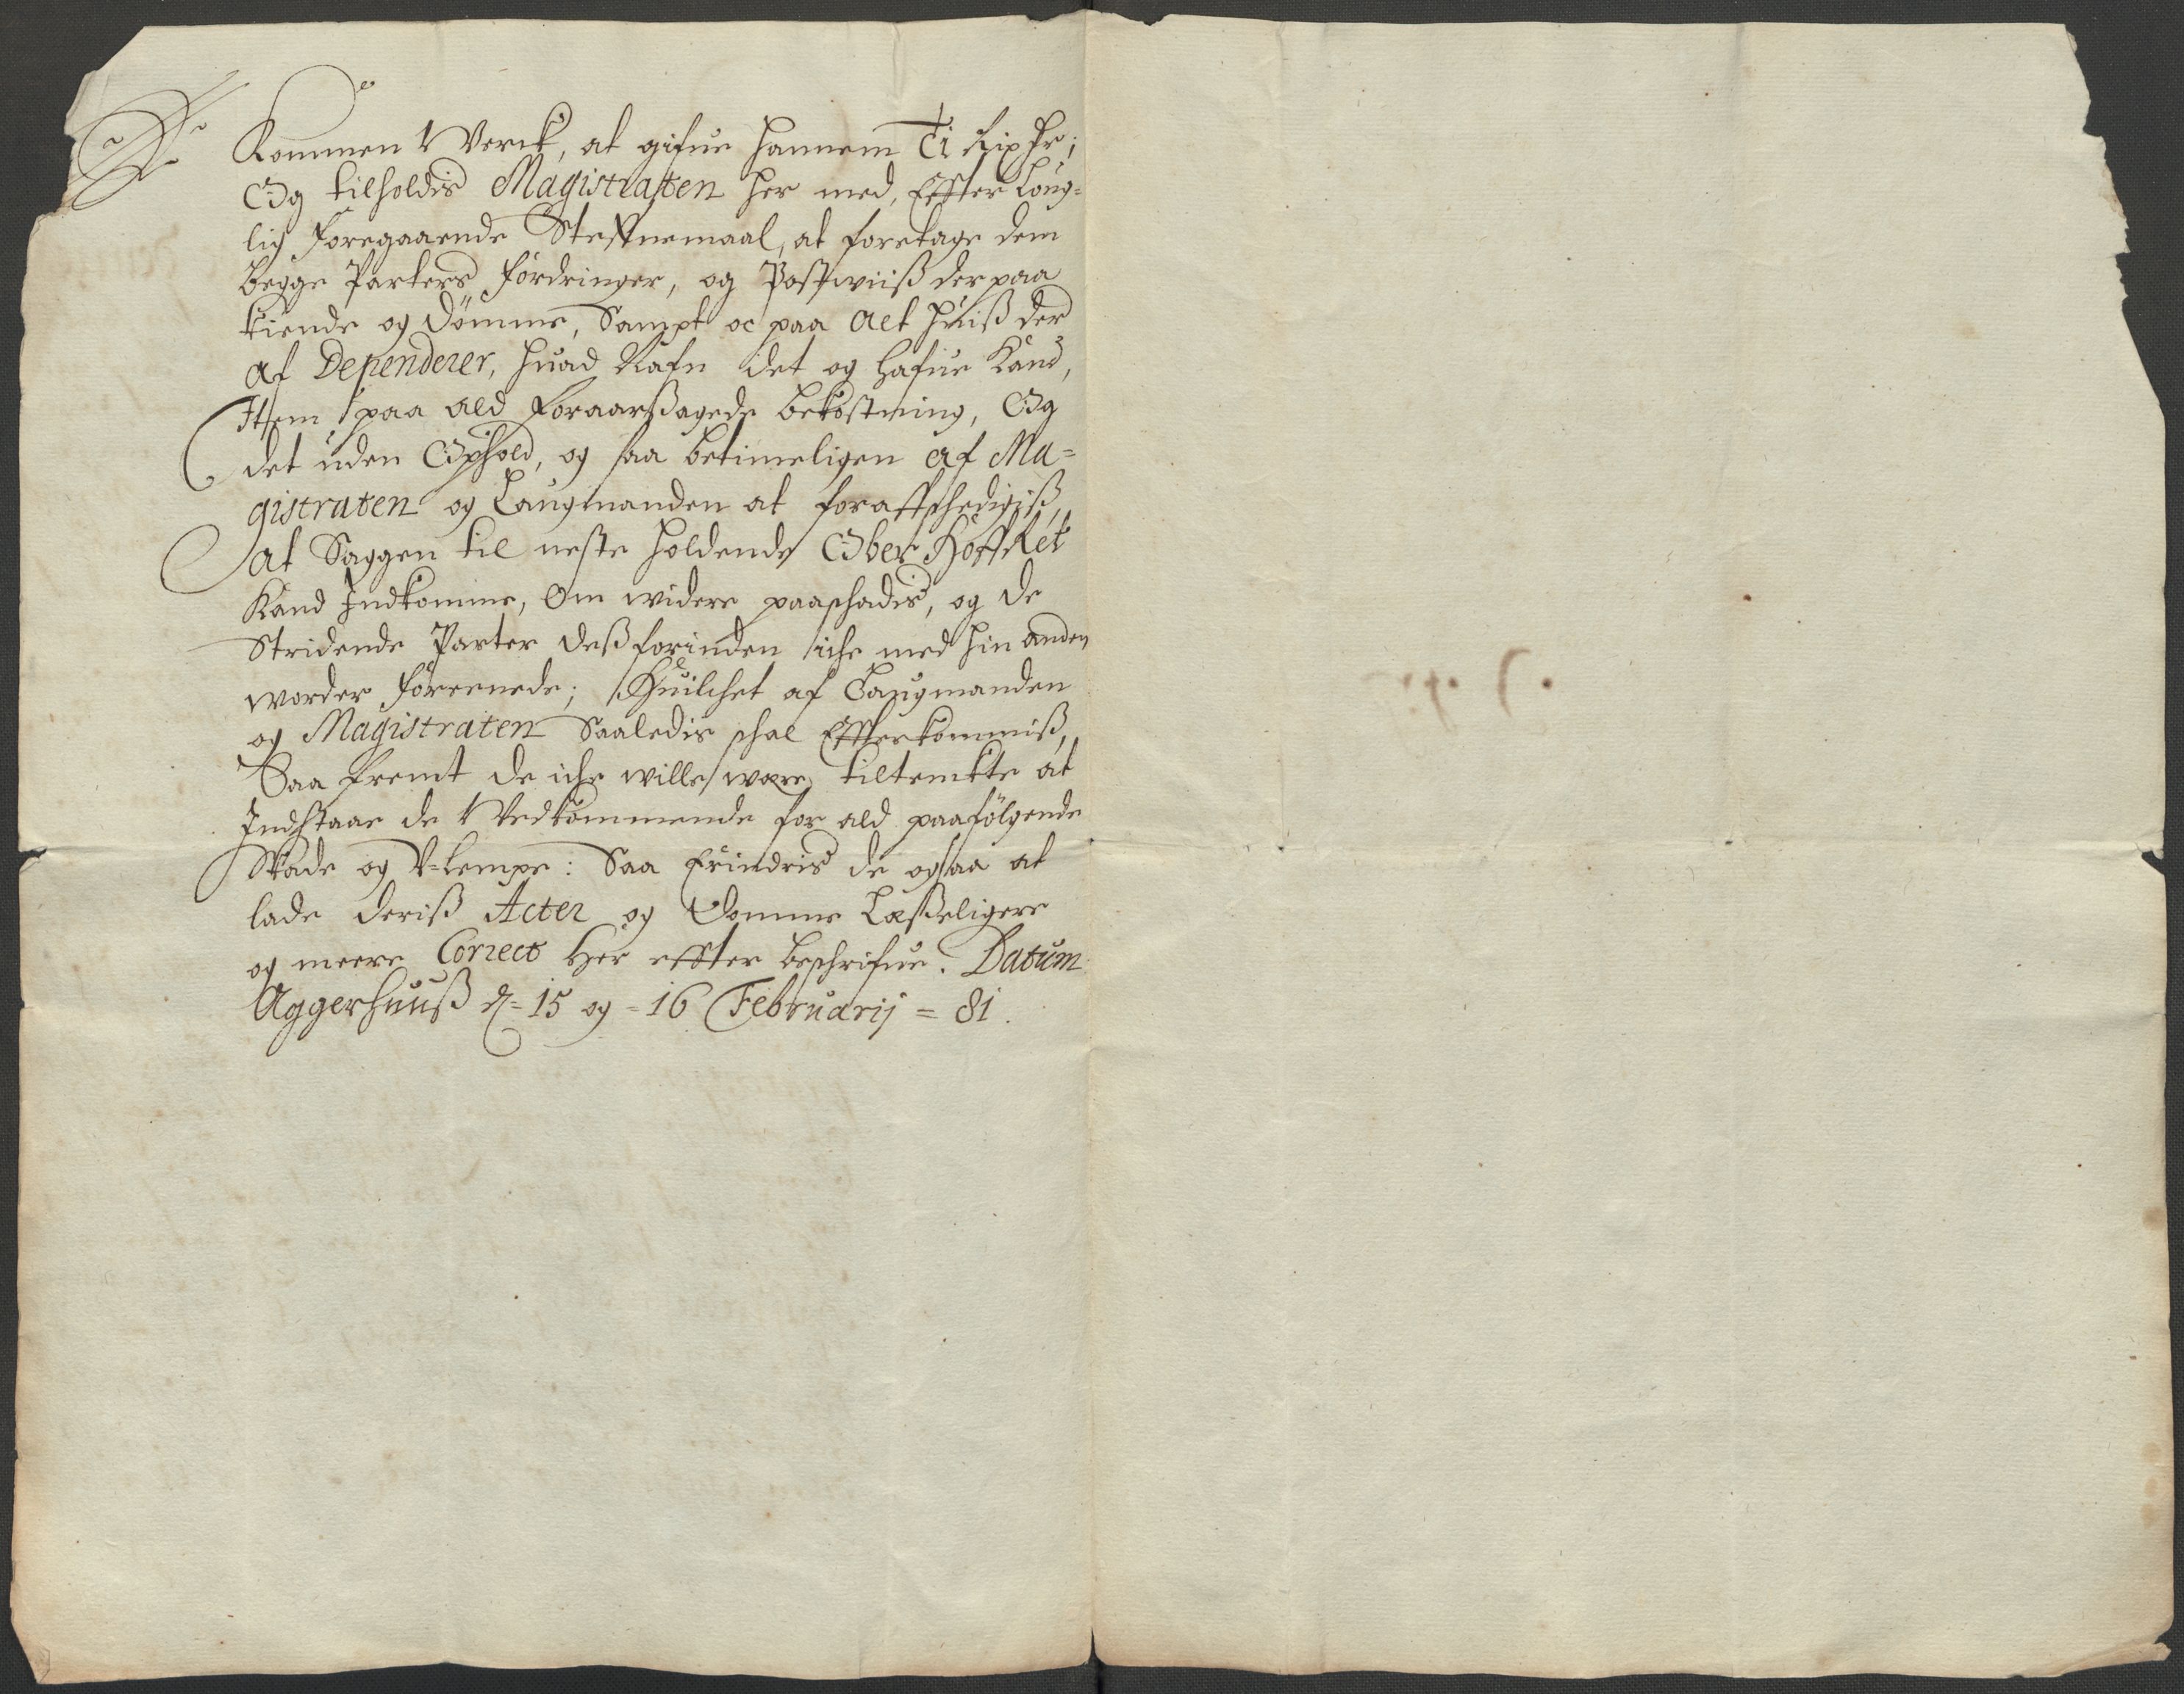 Kommen Werck, at gifue hannem Ti Rix dr;
Og tilholdis Magistraten her med, Effter Loug=
lig foregaaende Steffnemaal, at foretage dem
begge Parters fordringer, og Postwiiß der paa
kiende og dømme, Sampt oc paa alt huiß der
af Dependerer, huad Nafn det og hafue Kand,
Item paa ald foraarsagede bekostning, Og
det uden Ophold, og saa betimeligen af Ma=
gistraten og Laugmanden at foraffschedigiß,
at Saggen til neste holdende Ober Hoff Ret
Kand Indkomme, Om widere paaschadis, og de
Stridende Parter deßforinden iche med hin anden
worder foreenede; Huilchet af Laugmanden
og Magistraten Saaledis schal Effterkommiß,
Saa fremt de iche wille were tiltenckte at
Indstaae de Vedkommende for ald paafølgende
Skade og V-lempe: Saa Erindris de ogsaa at
lade deriß Acter og Domme Læsseligere
og meere Correct Her effter beschrifue. Datum
Aggerhuuß d= 15 og = 16 Februarij = 81.